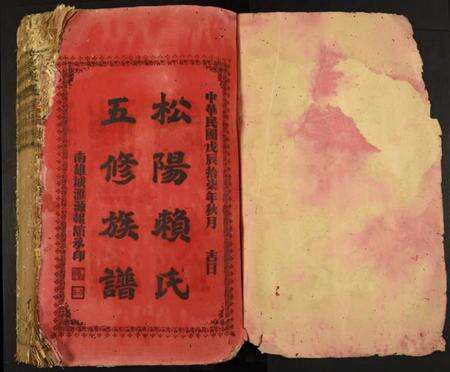 中華民國戊辰拾柒年秋月 吉日
松陽賴氏
五修族譜
南雄城承印